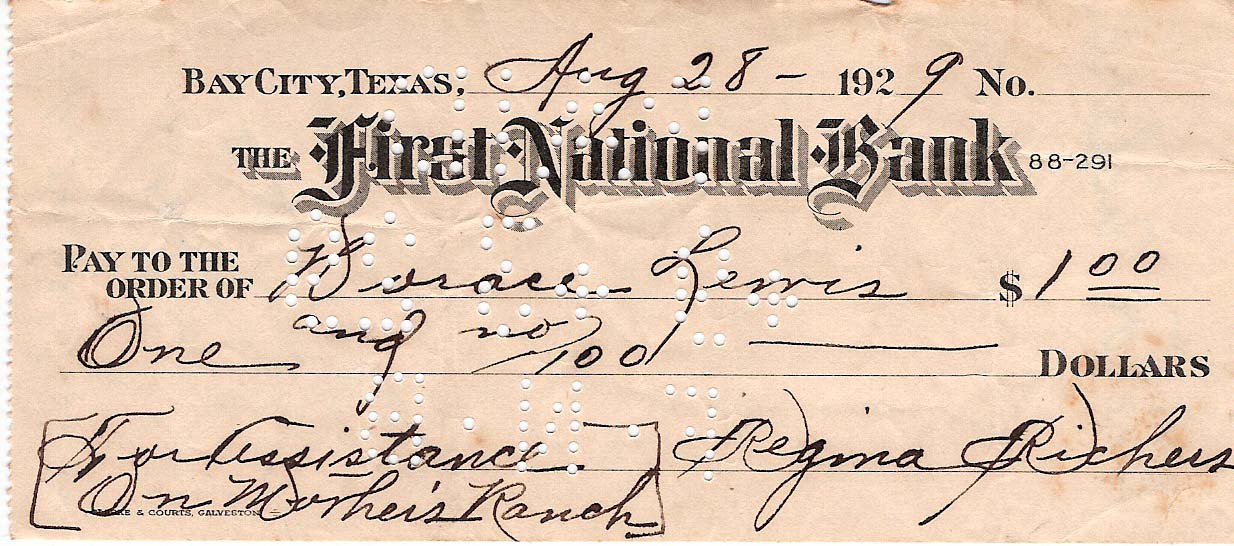 BAY CITY, TEXAS, Aug 28 - 1929 No.
THE First National Bank 88-291
PAY TO THE ORDER OF Horace Lewis $ 1 00
One and no/100 DOLLARS
For Assistance Regina Richers
On Mother's Ranch
& COURTS, GALVESTON